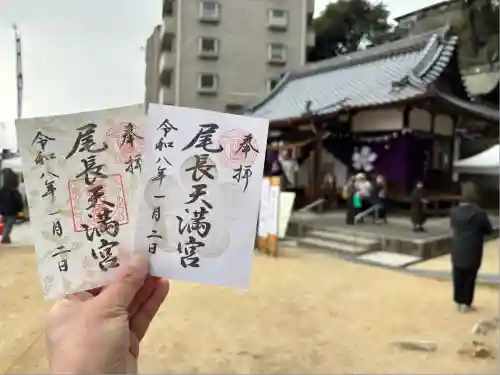 奉拝
尾長天満宮
令和八年一月二日
奉拝
尾長天満宮
令和八年一月二日